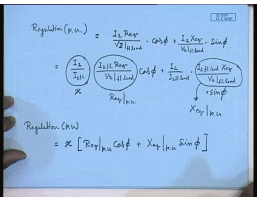 Regulation (p.u.) = I₂ Req / V₂|fl load · cosφ + I₂ Xeq / V₂|fl load · sinφ
= (I₂ / I₂fl) (I₂fl Req / V₂|fl load) cosφ + I₂ / I₂fl load · (I₂fl load Xeq / V₂|fl load)
x Req|pu × sinφ
Xeq|pu
Regulation (pu)
= x [Req|pu cosφ + Xeq|pu sinφ]